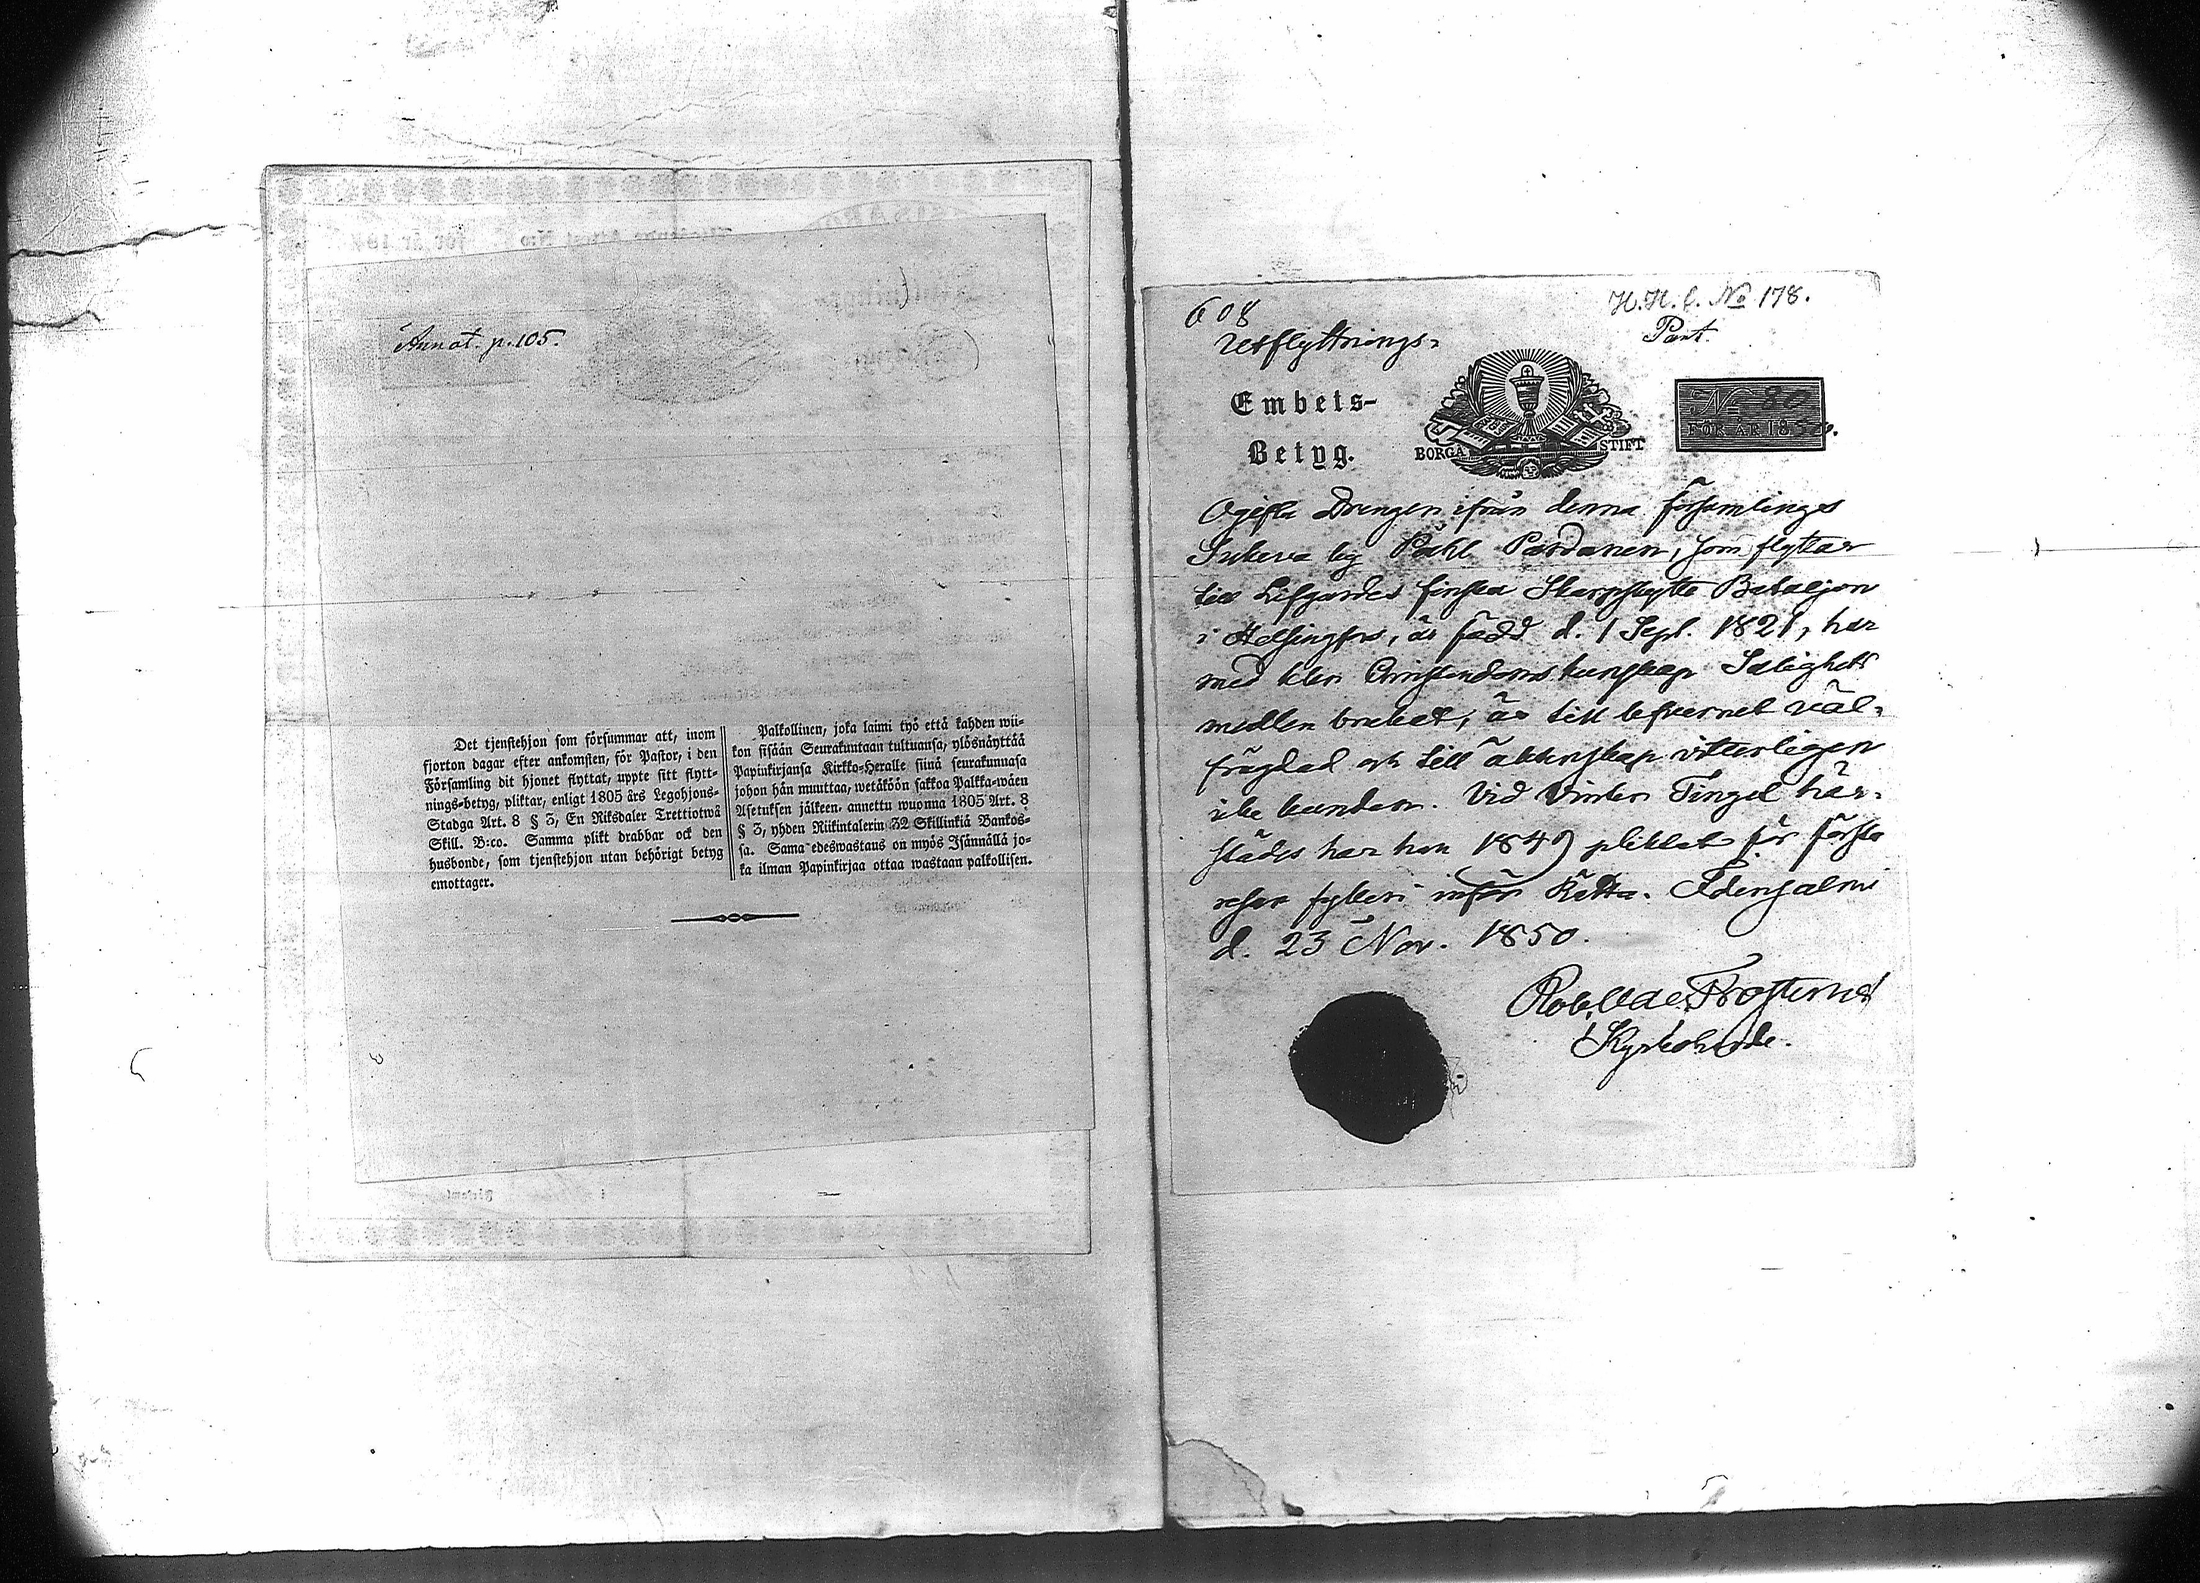 Annot. p. 105.
Det tjenstehjon som försummar att, inom
fjorton dagar efter ankomsten, för Pastor, i den
Församling dit hjonet flyttat, uppte sitt flytt-
nings-betyg, pliktar, enligt 1805 års Legohjons-
Stadga Art. 8 § 3, En Riksdaler Trettiotwå
Skill. B:co. Samma plikt drabbar ock den
husbonde, som tjenstehjon utan behörigt betyg
emottager.
Palkollinen, joka laimi lyö että kahden wii-
kon sisään Seurakuntaan tultuansa, ylösnäyttää
Papinkirjansa Kirkko-Heralle siinä seurakunnasa
johon hän muuttaa, wetäköön sakkoa Palkka-wäen
Asetuksen jälkeen, annettu wuonna 1805 Art. 8
§ 3, yhden Riikintalerin 32 Skillinkiä Bankos-
sa. Sama edeswastaus on myös Isännällä jo-
ka ilman Papinkirjaa ottaa wastaan palkollisen.
608
H.H.l. No 178.
Pant.
Utflyttnings-
Embets-
Betyg.
BORGÅ STIFT
No 90
FÖR ÅR 1850.
Ogifta Drengen ifrån denna församlings
Sukeva by Påhl Pardanen, som flyttar
till Lifgardes finska Skarpskytte Bataljon
i Helsingfors, är född d. 1 Sept. 1821, har
med klen Christendoms kunskap Salighets
medlen brukat, är till lefvernet väl-
frägdad och till äktenskap vitterligen
icke bunden. Vid Vinter Tinget här-
städes har han 1849 pliktat för första
resan fylleri inför Rätta. Idensalmi
d. 23 Nov. 1850.
Rob. Vald. Frosterus
Kyrkoherde.